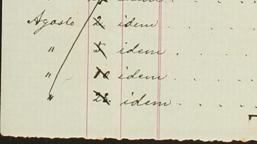 Agosto 2 idem
" 5 idem
" 10 idem
" 22 idem